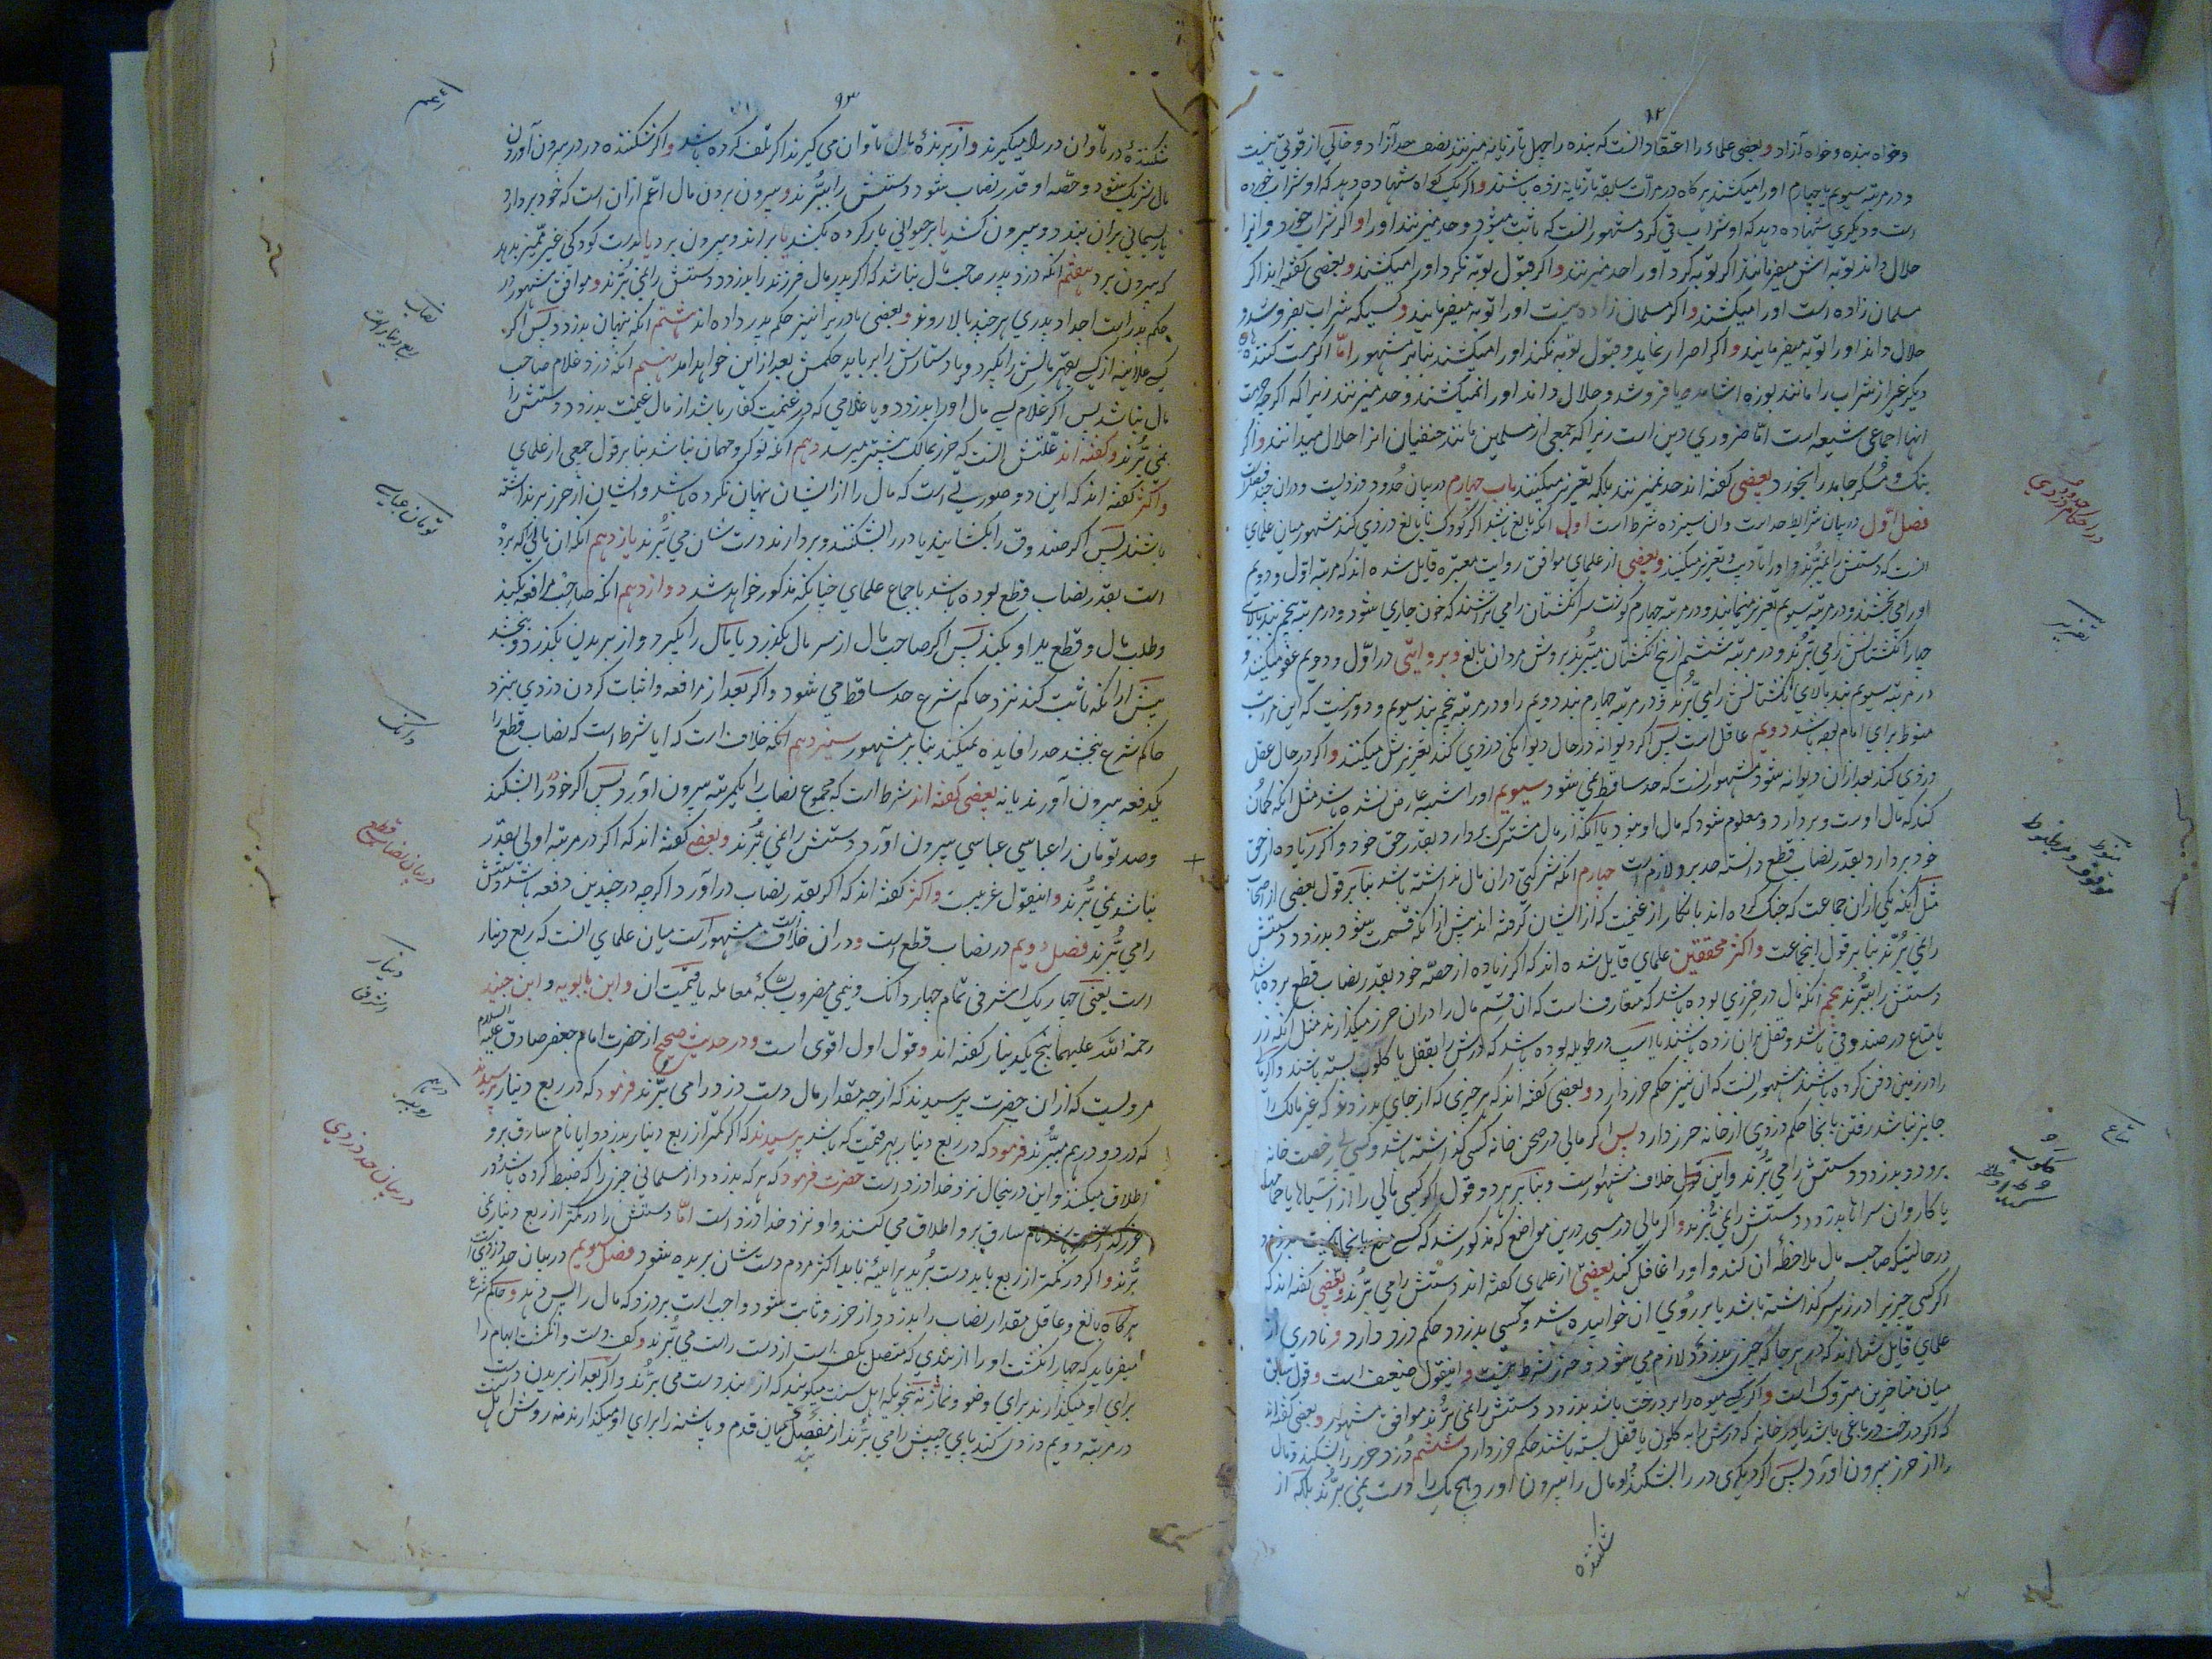 ۸۲
و خواه بنده و خواه آزاد و بعضی علماء را اعتقاد آنست که بنده را چهل تازیانه میزنند نصف حد آزاد و خالی از قوتی نیست
و در مرتبه سیوم یا چهارم او را میکشند هرگاه در مرات سابقه تازیانه زده باشند و اگر یک گواه شهاده دهد که او شراب خورده
است و دیگری شهاده دهد که او شراب قی کرد مشهور آنست که ثابت میشود و حد میزنند او را و اگر شراب خورد و انرا
حلال داند توبه اش میفرمایند اگر توبه کرد او را حد میزنند و اگر قبول توبه نکرد او را میکشند و بعضی گفته اند اگر
مسلمان زاده است او را میکشند و اگر مسلمان زاده نیست او را توبه میفرمایند و کسیکه شراب بفروشد و
حلال داند او را توبه میفرمایند و اگر اصرار نماید و قبول توبه نکند او را میکشند بنابر مشهور امّا اگر مست کننده های
دیگر غیر از شراب را مانند بوزه اشامد یا فروشد و حلال داند او را نمیکشند و حد میزنند زیرا که اگر چه حرمت
انها اجماعی شیعه است امّا ضروری دین است زیرا که جمعی از مسلمین مانند حنفیان انرا حلال میدانند و اگر
بنک و مسکر جامد را بخورد بعضی گفته اند حد نمیزنند بلکه تعزیر میکنند باب چهارم در بیان حدود دزدیست و دران چند فصل است
فصل اول در بیان شرایط حد است و ان سیزده شرط است اول انکه بالغ باشد اگر کودک نابالغ دزدی کند مشهور میان علمای
انست که دستش را نمیبُرند و او را تادیب و تعزیر میکنند و بعضی از علمای موافق روایت معتبره قایل شده اند که مرتبه اول و دویم
او را می بخشند و در مرتبه سیوم تعزیر مینمایند و در مرتبه چهارم گوشت سر انگشتان را می تراشند که خون جاری شود و در مرتبه پنجم بند بالای
چهار انگشتانش را می بُرند و در مرتبه ششم از بیخ انگشتان میبُرند بروش مردان بالغ و بروایتی در اوّل و دویم عفو میکنند و
در مرتبه سیوم بند بالای انگشتانش را می بُرند و در مرتبه چهارم بند دویم را و در مرتبه پنجم بند سیوم و دور نیست که این مراتب
منوط برای امام بوده باشد دویم عاقل است پس اگر دیوانه در حال دیوانکی دزدی کند تعزیرش میکنند و اگر در حال عقل
دزدی کند بعد ازان دیوانه شود مشهور انست که حد ساقط نمی شود سیوم او را شبهه عارض نشده باشد مثل انکه گمان
کند که مال اوست و بردارد و معلوم شود که مال او نبود یا انکه از مال مشترک بردارد بقدر حق خود و اگر زیاده از حق
خود بردارد بقدر نصاب قطع دانسته حد برو لازم است چهارم انکه شرکتی دران مال نداشته باشد بنابر قول بعضی از اصحاب
مثل انکه یکی ازان جماعت که جنک کرده اند با کفار از غنیمت که از ایشان گرفته اند پیش ازانکه قسمت شود بدزدد دستش
را نمی بُرند بنابر قول اینجماعت و اکثر محققین علمای قایل شده اند که اگر زیاده از حصه خود بقدر نصاب قطع برده باشد
دستش را ببُرند پنجم انکه مال در حرزی بوده باشد که متعارف است که ان قسم مال را دران حرز میگذارند مثل انکه زر
یا متاع در صندوقی باشد و قفل بران زده باشند یا اسپ در طویله بوده باشد که درش را بقفل یا کلوب بسته باشند و اگر مال
را در زمین دفن کرده باشند مشهور انست که ان نیز حکم حرز دارد و بعضی گفته اند که هر چیزی که از جای بدزدند که غیر مالک را
جایز نباشد رفتن بانجا حکم دزدی از خانه حرز دارد پس اگر مالی در صحن خانه کسی گذاشته باشد و کسی بی رخصت خانه
برود و بدزدد دستش را می بُرند و این قول خلاف مشهور است و بنابر هر دو قول اگر کسی مالی را از آسیاها یا حمامها
یا کاروان سراها بدزدد دستش را نمی بُرند و اگر مالی در مسجد درین مواضع که مذکور شد که کسی بدزدد
در حالتیکه صاحب مال ملاحظهٔ ان کند و او را غافل کند بعضی از علمای گفته اند دستش را می بُرند و بعضی گفته اند که
اگر کسی چیزیرا در زیر سر گذاشته باشد یا بر روی ان خوابیده باشد و کسی بدزدد حکم دزد دارد و نادری از
علمای قایل شده اند که در هر جا که چیزی بدزدد لازم می شود و حرز شرط نیست و اینقول ضعیف است و قول سابق
میان متاخرین متروک است و اگر کسی میوه را بر درخت باشد بدزدد دستش را نمی بُرند موافق مشهور و بعضی گفته اند
که اگر درخت در باغی باشد یا در خانه که درش را به کلون یا قفل بسته باشند حکم حرز دارد ششم دزد حرز را بشکند و مال
را از حرز بیرون اورد پس اگر دیگری در را بشکند و او مال را بیرون اورد هیچ یک را دست نمی بُرند بلکه از
شکننده
در احکام حدود دزدی
تعزیر
منوط
موقوف و مربوط
متاع
کلوب
۹۳
شکنندهٔ در تاوان در را میگیرند و از برندهٔ مال تاوان می گیرند اگر تلف کرده باشد و اگر شکننده در در بیرون آوردن
مال شریک شود و حصه او قدر نصاب شود دستش را ببُرند و بیرون بردن مال اعم ازان است که خود بردارد
یا ریسمانی بران بندد و بیرون کشد یا بر حیوانی بار کرده بکشد یا براند و بیرون برد یا بدست کودکی غیر ممیز بدهد
که بیرون برد هفتم انکه دزد پدر صاحب مال نباشد که اگر پدر مال فرزند را بدزدد دستش را نمی بُرند و موافق مشهور در
حکم پدر است اجداد پدری هر چند بالا روند و بعضی مادر را نیز حکم پدر داده اند هشتم انکه پنهان بدزدد پس اگر
کسی علانیه از کسی بقهر مالش را بگیرد و یا دستارش را برباید حکمش بعد ازین خواهد امد نهم انکه دزد غلام صاحب
مال نباشد پس اگر غلام کسی مال او را بدزدد و یا غلامی که در غنیمت کفار باشد از مال غنیمت بدزدد دستش را
نمی بُرند و گفته اند علتش انست که ضرر بمالک بیشتر میرسد دهم انکه نوکر و مهمان نباشد بنابر قول جمعی از علمای
و اکثر گفته اند که این در صورتی است که مال را از ایشان پنهان نکرده باشد و ایشان از حرز برنداشته
باشند پس اگر صندوق را بگشایند یا در را بشکنند و بردارند دست شان می بُرند یازدهم انکه ان مالی را که برده
است بقدر نصاب قطع بوده باشد باجماع علمای چنانکه مذکور خواهد شد دوازدهم انکه صاحبش مرافعه بکند
و طلب مال و قطع ید او بکند پس اگر صاحب مال از سر مال بگذرد یا مال را بگیرد و از بریدن بگذرد و ببخشد
پیش ازانکه ثابت کند نزد حاکم شرع حد ساقط می شود و اگر بعد از مرافعه و اثبات کردن دزدی نزد
حاکم شرع ببخشد حد را فایده نمیکند بنابر مشهور سیزدهم انکه خلاف است که ایا شرط است که نصاب قطع را
یکدفعه بیرون آورند یا نه بعضی گفته اند شرط است که مجموع نصاب را یکمرتبه بیرون آورد پس اگر خود در را بشکند
و صد تومان را عباسی عباسی بیرون اورد دستش را نمی بُرند و بعضی گفته اند که اگر در مرتبه اولی بقدر
نباشد نمی بُرند و اینقول غریبست و اکثر گفته اند که اگر بقدر نصاب دراورد اگرچه در چندین دفعه باشد دستش
را می بُرند فصل دویم در نصاب قطع است و دران خلاف است مشهور است میان علمای انست که ربع دینار
است یعنی چهار یک اشرفی تمام چهار دانک و نیمی مضروب بسکهٔ معامله یا قیمت ان و ابن بابویه و ابن جنید
رحمة الله علیهما پنج یکدینار گفته اند و قول اول اقوی است و در حدیث صحیح از حضرت امام جعفر صادق علیه السلام
مرویست که ازان حضرت پرسیدند که از چه مقدار مال دست دزد را می بُرند فرمود که در ربع دینار پرسیدند
که در دو درهم میبُرند فرمود که در ربع دینار بهر قیمت که باشد پرسیدند که اگر کمتر از ربع دینار بدزدد ایا نام سارق برو
اطلاق میکنند و این در ینحال نزد خدا دزد است حضرت فرمود که هر که بدزدد از مسلمانی چیزی را که ضبط کرده باشد و در
سارق برو اطلاق می کنند و او نزد خدا دزد است امّا دستش را در کمتر از ربع دینار نمی
بُرند و اگر در کمتر از ربع باید دست بُرید هرآینه باید اکثر مردم دست شان بریده شود فصل سیویم در بیان حد دزدی است
هرگاه بالغ و عاقل مقدار نصاب را بدزدد از حرز و ثابت شود واجب است بر دزد که مال را پس دهد و حاکم شرع
میفرماید که چهار انگشت او را از بندی که متصل بکف است از دست راست می بُرند و کف دست و انگشت ابهام را
برای او میگذارند برای وضو و نماز نه بنحویکه اهل سنت میگویند که از بند دست می برند و اگر بعد از بریدن دست
در مرتبه دویم دزدی کند پای چپش را می بُرند از مفصل میان قدم و پاشنه را برای او میگذارند نه روش اهل
نصاب
ربع دینار است
تومان عباسی
دانک
در بیان نصاب قطع
دینار
اشرفی
درهم
روپیه
در بیان حد دزدی